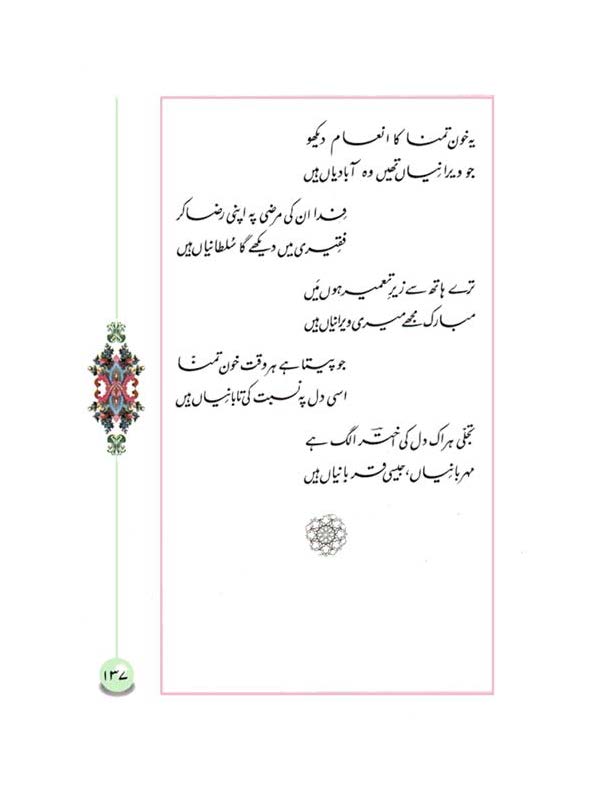 یہ خونِ تمنا کا انعام دیکھو
جو ویرانیاں تھیں وہ آبادیاں ہیں
فِدا ان کی مرضی پہ اپنی رضا کر
فقیری میں دیکھے گا سُلطانیاں ہیں
ترے ہاتھ سے زیرِ تعمیر ہوں مَیں
مبارک مجھے میری ویرانیاں ہیں
جو پیتا ہے ہر وقت خونِ تمنّا
اسی دل پہ نسبت کی تابانیاں ہیں
تجلّی ہر اک دل کی اخترؔ الگ ہے
مہربانیاں، جیسی قربانیاں ہیں
۱۳۷